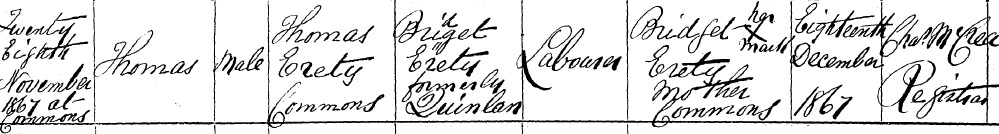 Twenty
Eighth
November
1867 at
Commons
Thomas
Male
Thomas
Erety
Commons
Bridget
Erety
formerly
Quinlan
Labourer
Bridget her
X mark
Erety
Mother
Commons
Eighteenth
December
1867
Chas McCrea
Registrar